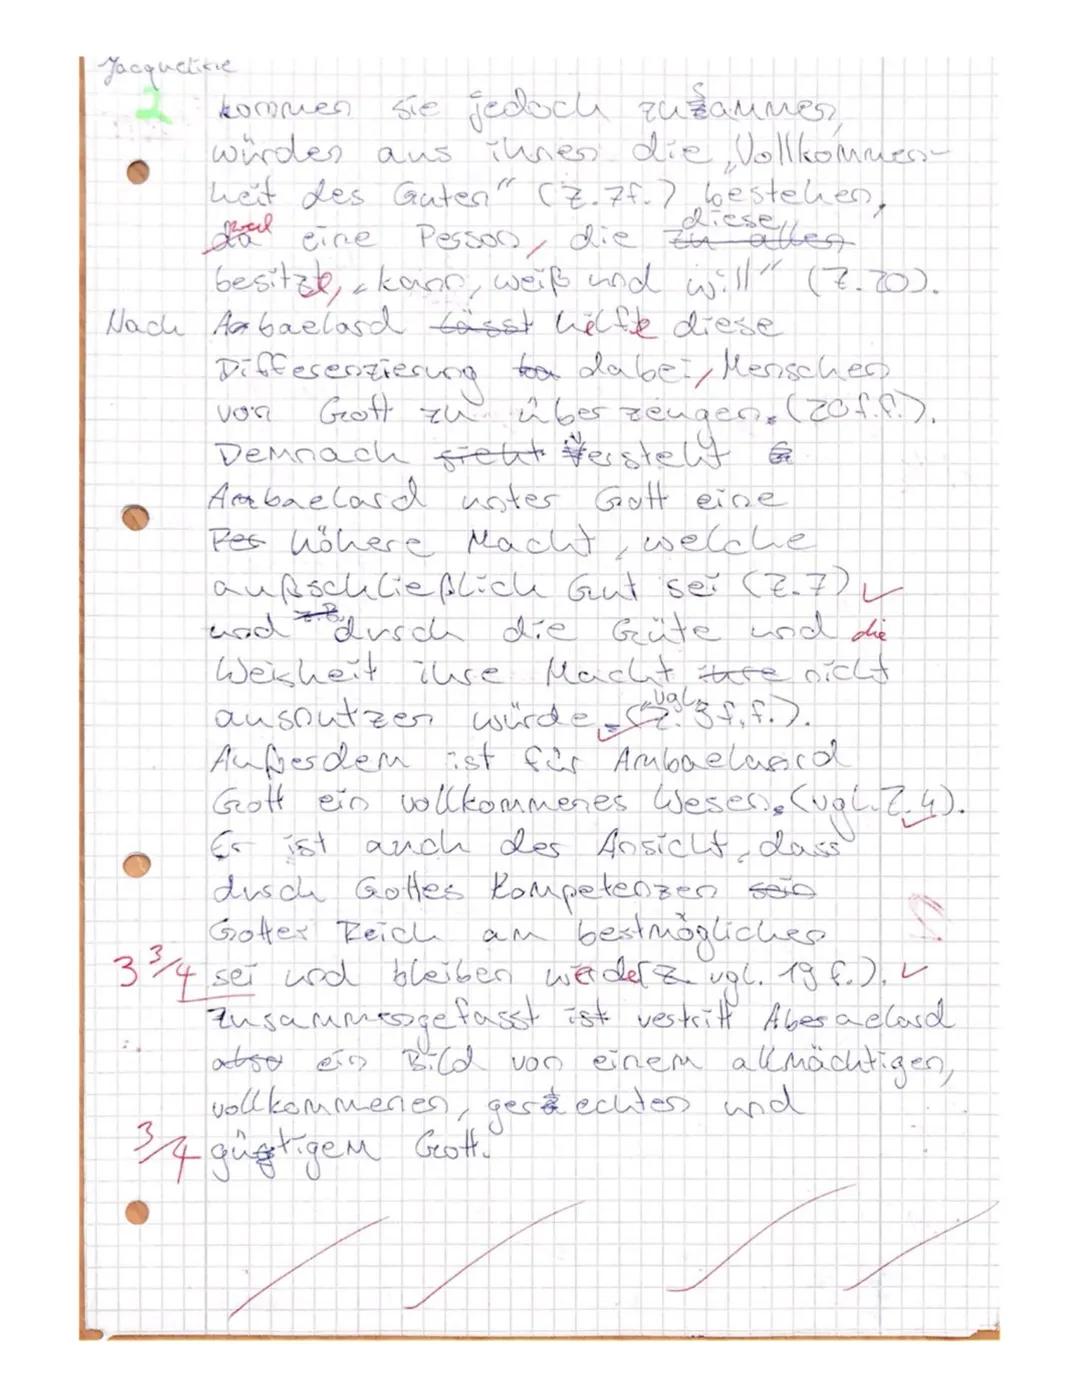 Jacqueline
2 kommen sie jedoch zusammen,
würden aus ihnen die „Vollkommen-
heit des Guten" (Z.7f.) bestehen,
da weil eine Person, die zu allen diese
besitzt, „kann, weiß und will" (Z.20).
Nach Aabaelard lässt hilfte diese
Differenzierung dabei, Menschen
von Gott zu überzeugen. (20f.f.).
Demnach sieht versteht
Ambaelard unter Gott eine
Per höhere Macht, welche
außschließlich Gut sei (Z.7) ✓
und z.B. durch die Güte und die
Weisheit ihre Macht ihre nicht
ausnutzen würde. (vgl. Z. 3f.f.).
Außerdem ist für Ambaelard
Gott ein vollkommenes Wesen. (vgl. Z.4).
Er ist auch der Ansicht, dass
durch Gottes Kompetenzen sein
Gottes Reich am bestmöglichen
3 3/4 sei und bleiben werde (Z. vgl. 19 f.). ✓
Zusammengefasst ist vertritt Aberaelard
also ein Bild von einem allmächtigen,
vollkommenen, gerechten und
3/4 gügtigem Gott.